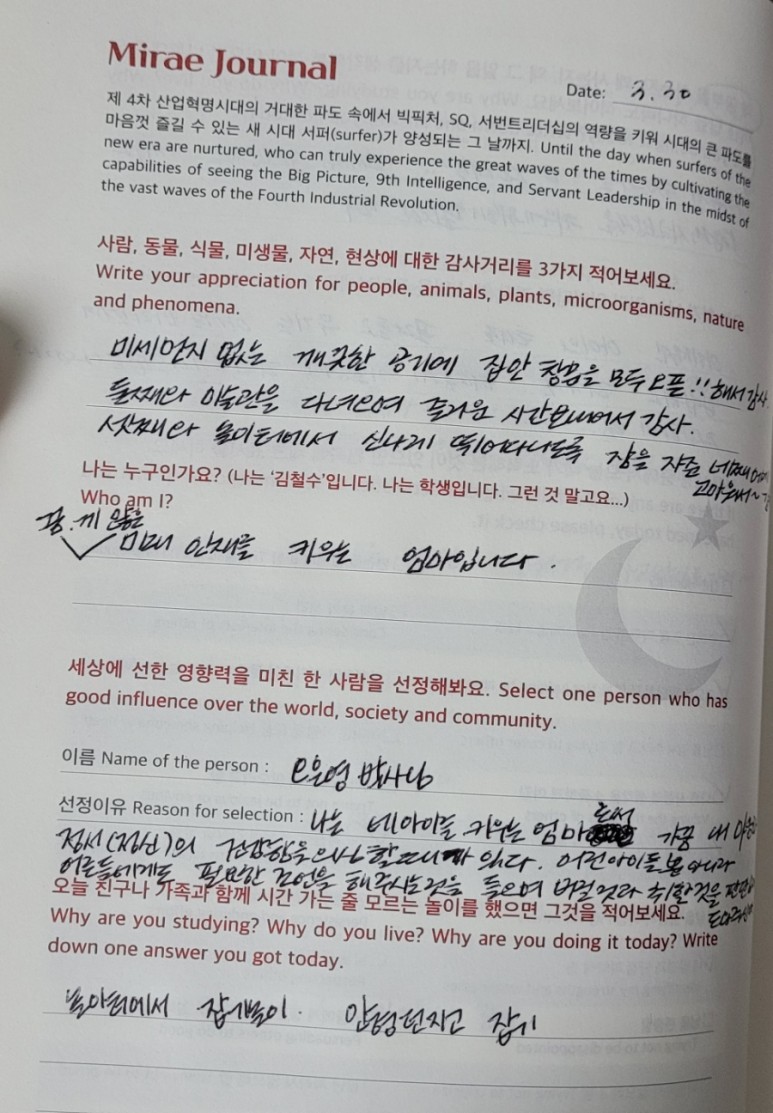 Mirae Journal
Date: 3. 30
제 4차 산업혁명시대의 거대한 파도 속에서 빅픽처, SQ, 서번트리더십의 역량을 키워 시대의 큰 파도를
마음껏 즐길 수 있는 새 시대 서퍼(surfer)가 양성되는 그 날까지. Until the day when surfers of the
new era are nurtured, who can truly experience the great waves of the times by cultivating the
capabilities of seeing the Big Picture, 9th Intelligence, and Servant Leadership in the midst of
the vast waves of the Fourth Industrial Revolution.
사람, 동물, 식물, 미생물, 자연, 현상에 대한 감사거리를 3가지 적어보세요.
Write your appreciation for people, animals, plants, microorganisms, nature
and phenomena.
미세먼지 없는 깨끗한 공기에 집안 창문을 모두 오픈!! 해서 감사.
둘째와 미술관을 다녀오며 즐거운 시간보내어서 감사.
셋째와 놀이터에서 신나게 뛰어다니도록 잠을 자준 네째에게
고마워서~
나는 누구인가요? (나는 '김철수'입니다. 나는 학생입니다. 그런 것 말고요...)
Who am I?
꿈. 끼 많은
미래 인재를 키우는 엄마입니다.
세상에 선한 영향력을 미친 한 사람을 선정해봐요. Select one person who has
good influence over the world, society and community.
이름 Name of the person : 오은영 박사님
선정이유 Reason for selection : 나는 네아이를 키우는 엄마로써 가끔 내
정서(정신)의 건강함을 의심할때가 있다. 어린아이들뿐 아니라
어른들에게도 필요한 조언을 해주시는것을 들으며 버릴것과 취할것을 판단
오늘 친구나 가족과 함께 시간 가는 줄 모르는 놀이를 했으면 그것을 적어보세요.
Why are you studying? Why do you live? Why are you doing it today? Write
down one answer you got today.
놀이터에서 잡기놀이. 인형던지고 잡기